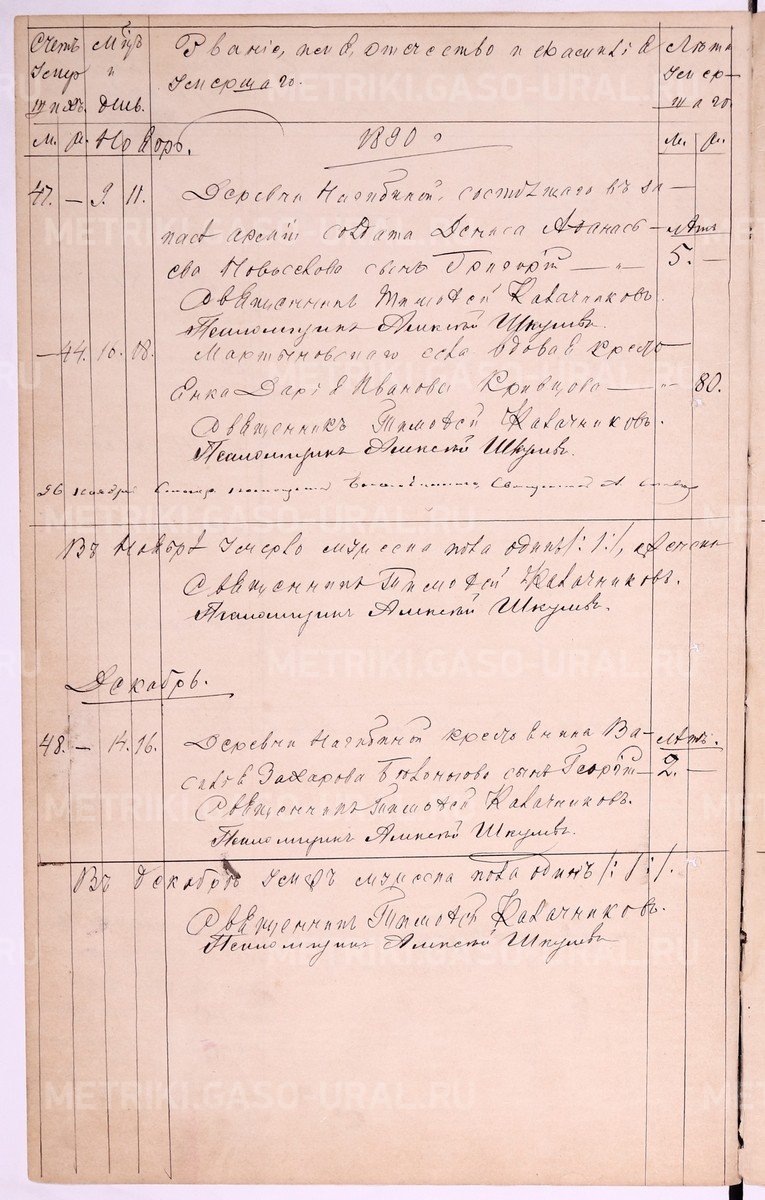 Счетъ Умер шихъ.
Мцъ и день.
Званіе, имя, отчество и фамилія умершаго.
Лѣта умер- шаго
м. ж. Ноябрь. 1890 г. м. ж.
47. — 9. 11. Деревни Нагибиной, состоящаго въ за-
пасѣ арміи солдата Дениса Аѳанась- лѣтъ
ева сынъ Григорій — „ — 5. —
Священникъ Тимоѳей Кавачниковъ.
Псаломщикъ Алексѣй Шкулевъ.
— 44. 16. 18. Мартыновскаго села вдова крестъ-
янка Дарія Иванова Кривцова — „ 80.
Священникъ Тимоѳей Кавачниковъ.
Псаломщикъ Алексѣй Шкулевъ.
26 ноября
Въ Ноябрѣ умерло мужеска пола одинъ /:1:/, женска
Священникъ Тимоѳей Кавачниковъ.
Псаломщикъ Алексѣй Шкулевъ.
Декабрь.
48. — 14. 16. Деревни Нагибиной крестьянина Ва- лѣтъ.
Захарова сынъ Георгій — 2. —
Священникъ Тимоѳей Кавачниковъ.
Псаломщикъ Алексѣй Шкулевъ.
Въ Декабрѣ умеръ мужеска пола одинъ /:1:/.
Священникъ Тимоѳей Кавачниковъ.
Псаломщикъ Алексѣй Шкулевъ
METRIKI.GASO-URAL.RU